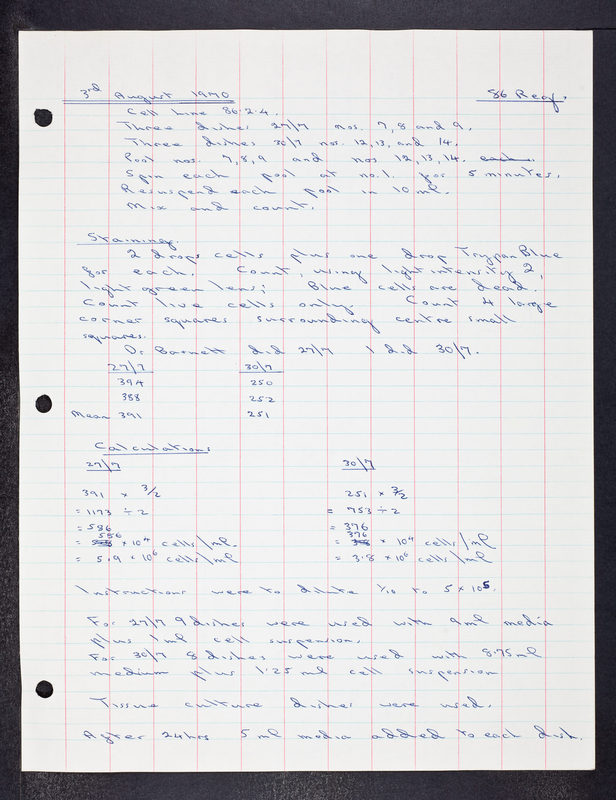 3rd August 1970 86 Reg.
Cell line 86.2.4.
Three dishes 27/7 nos. 7, 8 and 9.
Three dishes 30/7 nos. 12, 13, and 14.
Pool nos. 7, 8, 9 and nos 12, 13, 14. each.
Spin each pool at no. 1. for 5 minutes.
Resuspend each pool in 10 ml.
Mix and count.
Staining.
2 drops cells plus one drop Trypan Blue
for each. Count, using light intensity 2,
light green lens; Blue cells are dead.
Count live cells only. Count 4 large
corner squares surrounding centre small
squares.
Dr Barnett did 27/7 I did 30/7.
27/7 30/7
394 250
388 252
Mean 391 251
Calculations
27/7 30/7
391 × 3/2 251 × 3/2
= 1173 ÷ 2 = 753 ÷ 2
= 586 = 376
586 376
= × 10⁴ cells/ml. = × 10⁴ cells/ml
= 5.9 × 10⁶ cells/ml = 3.8 × 10⁶ cells/ml
Instructions were to dilute 1/10 to 5 × 10⁵.
For 27/7 9 dishes were used with 9ml media
plus 1ml cell suspension.
For 30/7 8 dishes were used with 8.75ml
medium plus 1.25 ml cell suspension
Tissue culture dishes were used.
After 24hrs 5 ml media added to each dish.